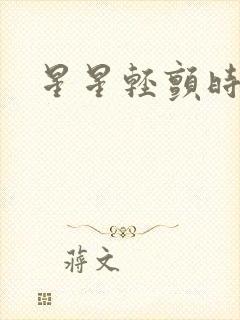 星星輕顫時
蔣文